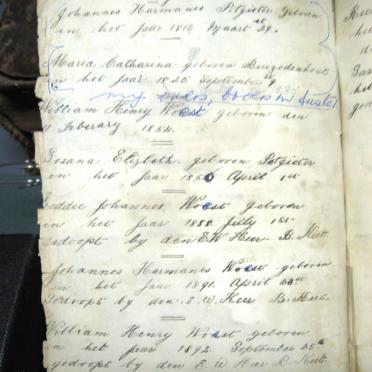 Johannes Hermanus Potgieter geboren
in het Jaar 1812 Maart 29.
Maria Catharina geboren Bezuidenhout
in het Jaar 1825 September
my ouers, broers en suster
William Henry Woest geboren den
11 Feberary 1854.
Rosana Elizbeth geboren Potgieter
in het Jaar 1860 April 1st
Johannes Woest geboren
in het Jaar 1888 July 1st
Gedoopt by den E.W Heer B. Keet.
Johannes Hermanes Woest geboren
in het Jaar 1891 April 23st
Gedoopt by den E.W. Heer B. Keet.
William Henry Woest geboren
in het Jaar 1892 September 25st
gedoopt by den E. W. Heer Keet.